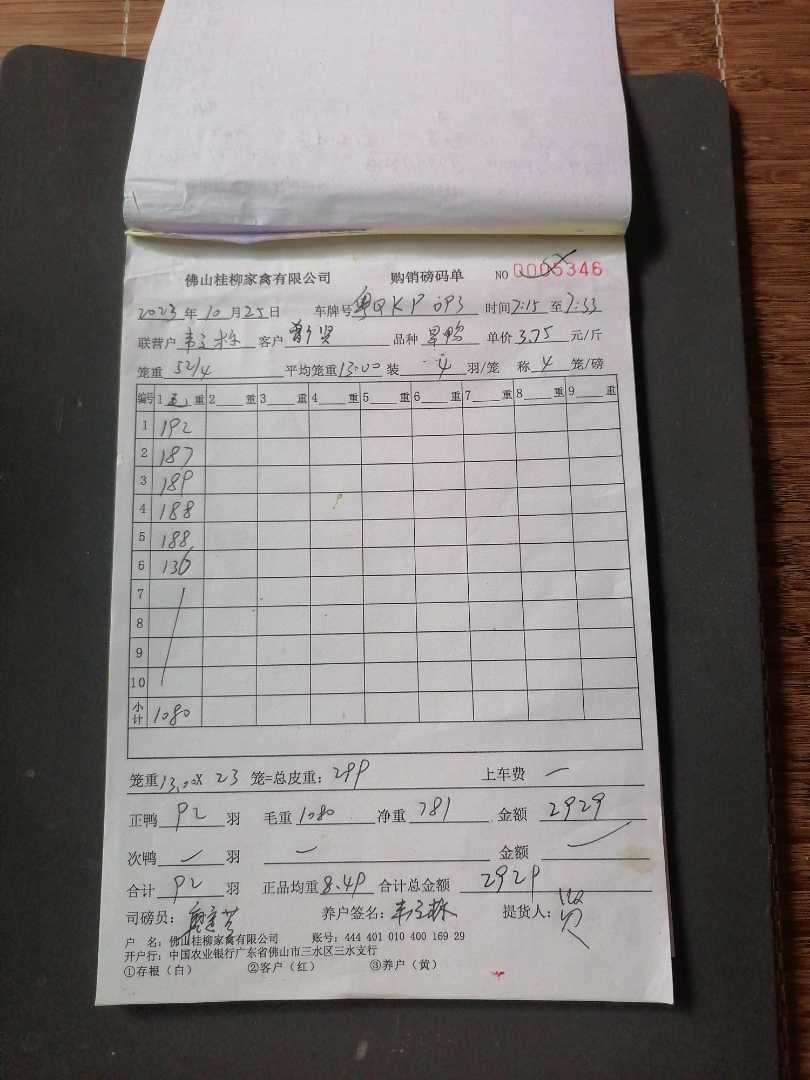 佛山桂柳家禽有限公司 购销磅码单 NO 0005346
2023年10月25日 车牌号粤QKP 时间7:15至7:33
联营户韦立栋 客户 品种 单价3.75元/斤
笼重52/4 平均笼重13.00装4羽/笼 称4笼/磅
编号 1 重 2 重 3 重 4 重 5 重 6 重 7 重 8 重 9 重
1 192
2 187
3 189
4 188
5 188
6 136
7
8
9
10
小计 1080
笼重13.00X 23 笼=总皮重：299 上车费 一
正鸭92羽 毛重1080 净重781 金额2929
次鸭 羽 金额
合计92羽 正品均重8.49 合计总金额2929
司磅员： 养户签名：韦立栋 提货人：
户 名：佛山桂柳家禽有限公司 账号：444 401 010 400 169 29
开户行：中国农业银行广东省佛山市三水区三水支行
①存根（白） ②客户（红） ③养户（黄）